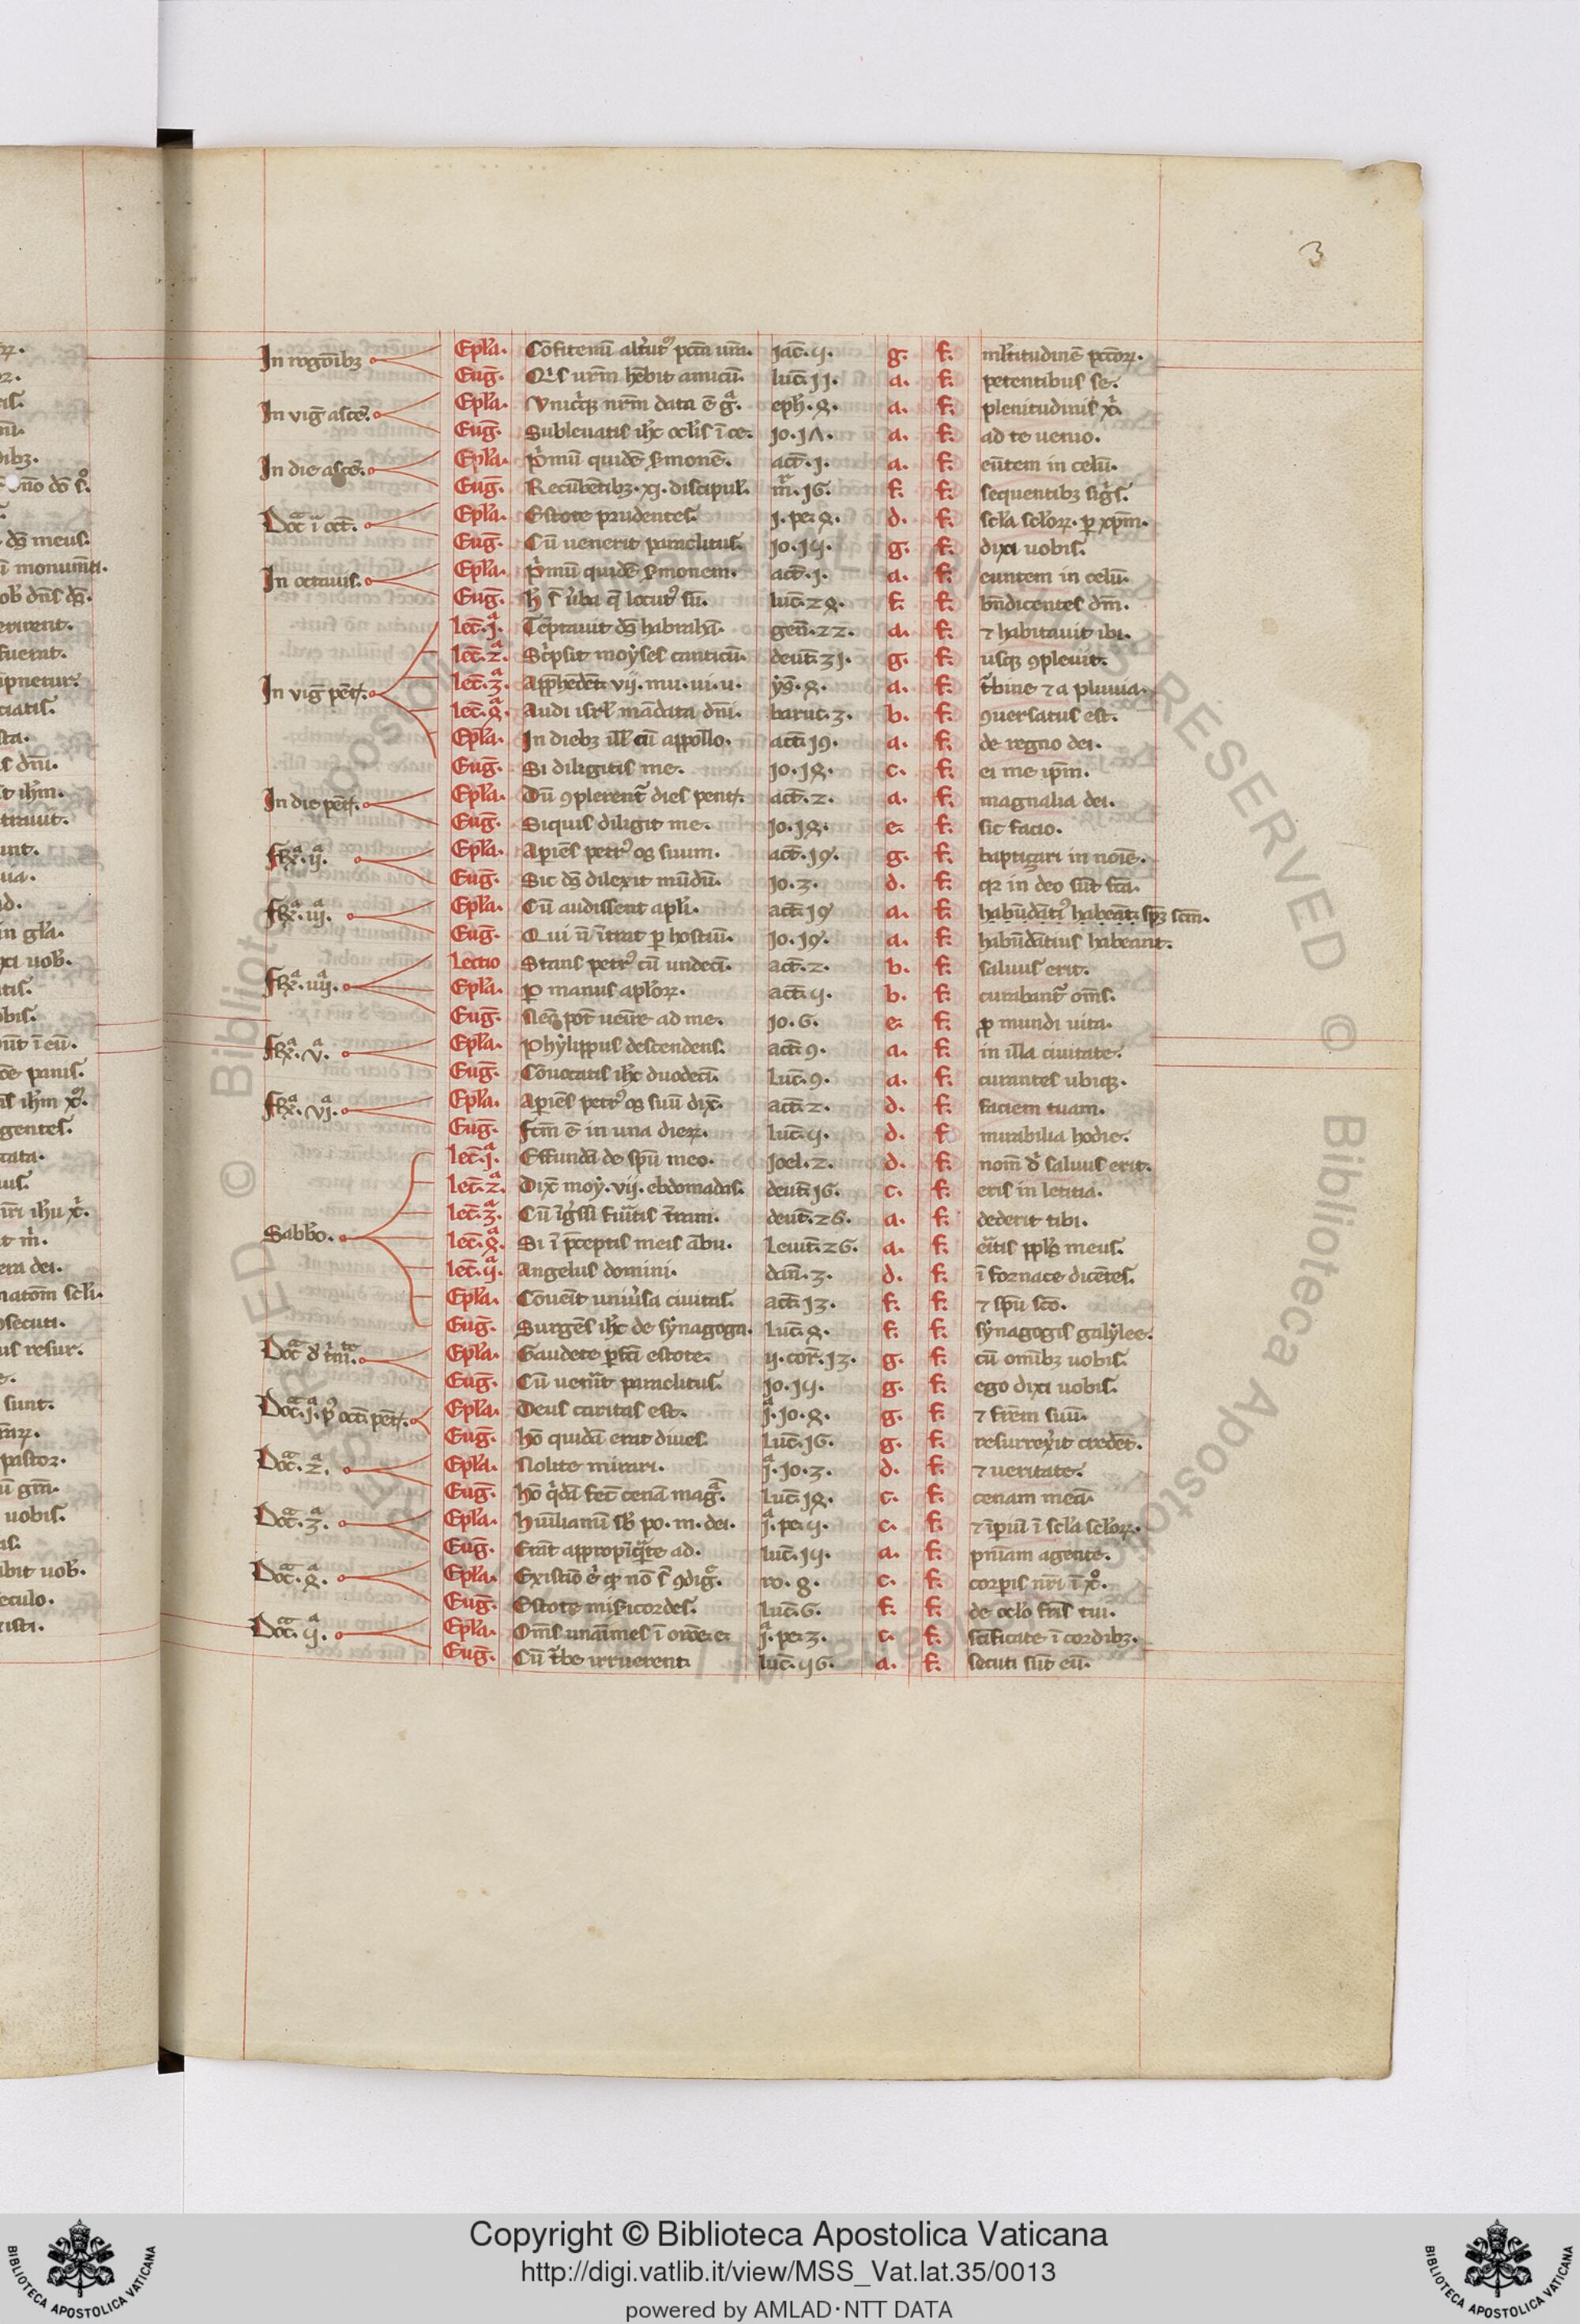 3
In rogōibꝫ Epl'a. Cōfitemī alt'utꝰ pctā ūra. Jac. 5. g. f. ml'titudinē pctōꝝ.
Eug̅. Qͥs ur̄m hēbit amicū. luc̄. 11. a. f. petentibus se.
In vig̅ asce̅. Epl'a. Vnicͥqꝫ nr̄m data ē gͣ. eph̄. 4. a. f. plenitudinis xͥ.
Eug̅. Subleuatis ih̄c ocl'is ī ce. Jo. 17. a. f. ad te uenio.
In die asce̅. Epl'a. Pͥmū quidē ẜmonē. act̄. 1. a. f. eūtem in celū.
Eug̅. Recūbētibꝫ. xj. discipul'. mͬ. 16. f. f. sequentibꝫ sig̅s.
Doͨͣ ī oct̄. Epl'a. Estote prudentes. 1. pe. 4. d. f. scl'a scl'oꝝ. ꝑ xp̄m.
Eug̅. Cū uenerit paraclitus. Jo. 15. g. f. dixi uobis.
In octauis. Epl'a. Pͥmū quidē ẜmonem. act̄. 1. a. f. euntem in celū.
Eug̅. h̄ s̄ ūba q̄ locutꝰ sū. luc̄. 24. f. f. bn̄dicentes dm̄.
In vig̅ pēt̄. lec̄. 1ͣ. Tēptauit dſ̄ habrahā. gen̄. 22. a. f. ⁊ habitauit ibi.
lec̄. 2ͣ. Scͥpsit moẏses canticū. deut̄. 31. g. f. usqꝫ ꝯpleuit.
lec̄. 3ͣ. Apph̄edēt vii. mu. ui. u. ẏs̄. 4. a. f. t̄bine ⁊ a pluuia.
lec̄. 4ͣ. Audi isrl' mādata dn̄i. baruc. 3. b. f. ꝯuersatus est.
Epl'a. In diebꝫ ill' cū appollo. act̄. 19. a. f. de regno dei.
Eug̅. Si diligitis me. Jo. 14. c. f. ei me ip̄m.
In die pēt̄. Epl'a. Dū ꝯplerent̄ dies pent̄. act̄. 2. a. f. magnalia dei.
Eug̅. Siquis diligit me. Jo. 14. e. f. sic facio.
fꝫͣ. ijͣ. Epl'a. Apiēs petrꝰ os suum. act̄. 10. g. f. baptiçari in noīe.
Eug̅. Sic dſ̄ dilexit mūdū. Jo. 3. d. f. qꝛ in deo sūt fcā.
fꝫͣ. iijͣ. Epl'a. Cū audissent apl'i. act̄. 10 a. f. habūdātiꝰ habeāt. sp̄ꝫ scm̄.
Eug̅. Qui n̄ ītrat ꝑ hostiū. Jo. 10. a. f. habūdātius habeant.
fꝫͣ. iiijͣ. Lectio Stans petrꝰ cū undeci. act̄. 2. b. f. saluus erit.
Epl'a. Ꝑ manus apl'oꝝ. act̄. 5. b. f. curabant̄ om̄s.
Eug̅. Nēo pōt uenīre ad me. Jo. 6. e. f. ꝓ mundi uita.
fꝫͣ. vͣ. Epl'a. Phẏlippus descendens. act̄. 9. a. f. in illa ciuitate.
Eug̅. Cōuocatis ih̄c duodeci. Luc̄. 9. a. f. curantes ubiqꝫ.
fꝫͣ. vjͣ. Epl'a. Apiēs petrꝰ os suū dix̄. act̄. 2. d. f. faciem tuam.
Eug̅. fcm̄ ē in una dieꝝ. luc̄. 5. d. f. mirabilia hodie.
Sabb̄o. lec̄. 1ͣ. Effundā de spū meo. Joel. 2. d. f. nom̄ dͥ saluus erit.
lec̄. 2ͣ. Dix̄ moẏ. vii. ebdomadas. deut̄. 16. c. f. eris in letitia.
lec̄. 3ͣ. Cū īgͥssi fuītis t̄ram. deut̄. 26. a. f. dederit tibi.
lec̄. 4ͣ. Si ī p̄ceptis meis ābu. Leuit̄. 26. a. f. eītis ppl'us meus.
lec̄. 5ͣ. Angelus domini. dan̄. 3. d. f. ī fornace dicētes.
Epl'a. Cōueit uniūsa ciuitas. act̄. 13. f. f. ⁊ spū scō.
Eug̅. Surgēs ih̄c de sẏnagoga. Luc̄. 4. f. f. sẏnagogis galẏlee.
Doͨͣ dͤ tͥniͭͤ. Epl'a. Gaudete ꝑfcī estote. ij. cor̄. 13. g. f. cū omībꝫ uobis.
Eug̅. Cū uen̄it paraclitus. Jo. 15. g. f. ego dixi uobis.
Doͨͣ. 1ͣ. pꝰ oct̄ pēt̄. Epl'a. Deus caritas est. 1ͣ. Jo. 4. g. f. ⁊ fr̄em suū.
Eug̅. hō quidā erat diues. Luc̄. 16. g. f. resurrexͥit credēt.
Doͨͣ. 2ͣ. Epl'a. Nolite mirari. 1ͣ. Jo. 3. d. f. ⁊ ueritate.
Eug̅. hō qͥdā fec̄ cenā magͣ̄. Luc̄. 14. c. f. cenam meā.
Doͨͣ. 3ͣ. Epl'a. hūiliamī sb̄ po. m. dei. 1ͣ. pe. 5. c. f. ⁊ īpiū ī scl'a scl'oꝝ.
Eug̅. Erāt appropīqͣte ad. luc̄. 15. a. f. pn̄iam agente.
Doͨͣ. 4ͣ. Epl'a. Existīo eͥ qꝫ nō s̄ ꝯdigͣ̄. ro. 8. c. f. corꝑis nr̄i ī xͦ.
Eug̅. Estote misͥicordes. luc̄. 6. f. f. de oclo fr̄is tui.
Doͨͣ. 5ͣ. Epl'a. Om̄s unaīmes ī oroē. e. 1ͣ. pe. 3. c. f. scīficate ī cordibꝫ.
Eug̅. Cū t̄be irruerent. luc̄. 56. a. f. secuti sūt eū.
Copyright © Biblioteca Apostolica Vaticana
http://digi.vatlib.it/view/MSS_Vat.lat.35/0013
powered by AMLAD·NTT DATA
BIBLIOTECA APOSTOLICA VATICANA
BIBLIOTECA APOSTOLICA VATICANA